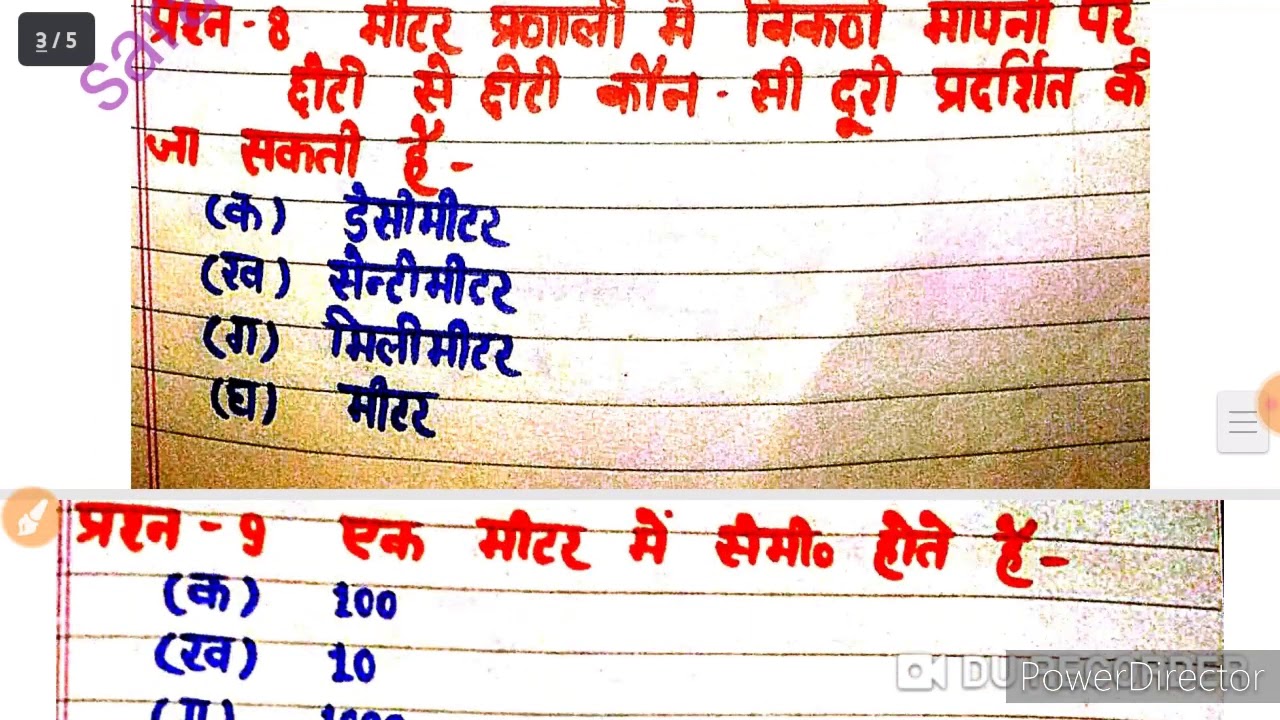 3 / 5
प्रश्न - 8 मीटर प्रणाली में विकर्ण मापनी पर
छोटी से छोटी कौन - सी दूरी प्रदर्शित की
जा सकती है -
(क) डेसीमीटर
(ख) सेन्टीमीटर
(ग) मिलीमीटर
(घ) मीटर
प्रश्न - 9 एक मीटर में सेमी० होते हैं -
(क) 100
(ख) 10
(ग) 1000
PowerDirector